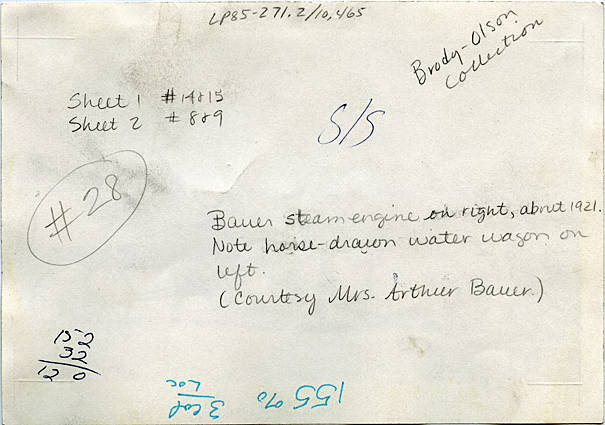 LP85-271.2/10,465
Brody-Olson
Collection
Sheet 1 #14&15
Sheet 2 #8&9
S/S
#28
Bauer steam engine on right, about 1921.
Note horse-drawn water wagon on
left.
(Courtesy Mrs. Arthur Bauer.)
155%
3 col
LOC